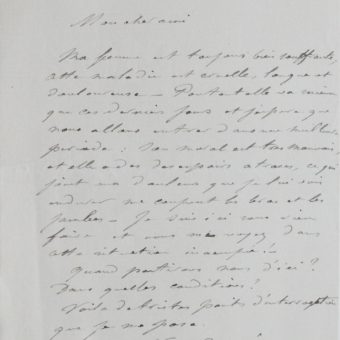 Mon cher ami
Ma femme est toujours bien souffrante,
cette maladie est cruelle, longue et
douloureuse — Pourtant elle va mieux
que ces derniers jours et j'espère que
nous allons entrer dans une meilleure
période : son moral est très mauvais,
et elle a des désespoirs atroces, ce qui
joint aux douleurs que je lui vois
endurer me coupent les bras et les
jambes — Je suis ici sans rien
faire et vous me voyez dans
cette situation
Quand partirons nous d'ici ?
Dans quelles conditions ?
Voilà de tristes points d'interrogation
que je me pose.